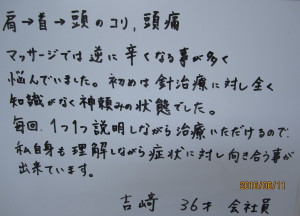 肩→首→頭のコリ,頭痛
マッサージでは逆に辛くなる事が多く
悩んでいました。初めは針治療に対し全く
知識がなく神頼みの状態でした。
毎回、1つ1つ説明しながら治療いただけるので、
私自身も理解しながら症状に対し向き合う事が
出来ています。
吉崎 36才 会社員
2016/06/11